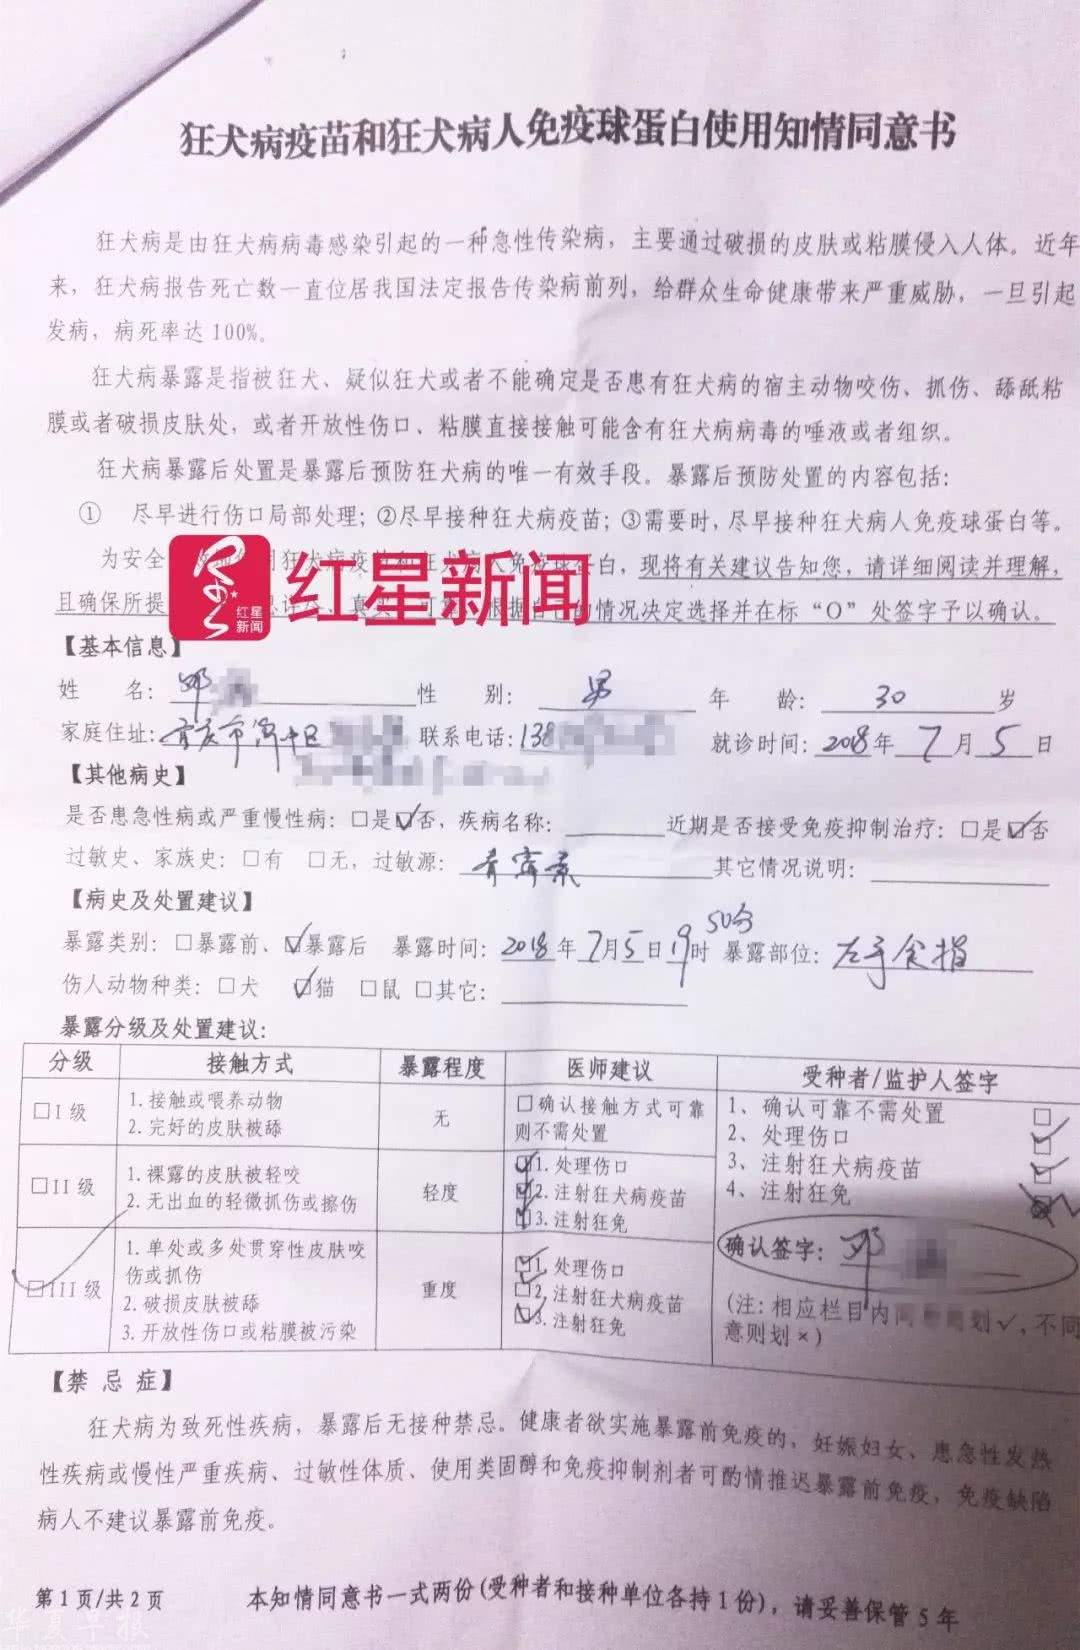 狂犬病疫苗和狂犬病人免疫球蛋白使用知情同意书
狂犬病是由狂犬病病毒感染引起的一种急性传染病，主要通过破损的皮肤或粘膜侵入人体。近年
来，狂犬病报告死亡数一直位居我国法定报告传染病前列，给群众生命健康带来严重威胁，一旦引起
发病，病死率达 100%。
狂犬病暴露是指被狂犬、疑似狂犬或者不能确定是否患有狂犬病的宿主动物咬伤、抓伤、舔舐粘
膜或者破损皮肤处，或者开放性伤口、粘膜直接接触可能含有狂犬病病毒的唾液或者组织。
狂犬病暴露后处置是暴露后预防狂犬病的唯一有效手段。暴露后预防处置的内容包括：
① 尽早进行伤口局部处理；②尽早接种狂犬病疫苗；③需要时，尽早接种狂犬病人免疫球蛋白等。
为安全 用狂犬病疫苗和狂犬病人免疫球蛋白，现将有关建议告知您，请详细阅读并理解，
且确保所提 真实、可 根据自己的情况决定选择并在标“O”处签字予以确认。
红星新闻
红星
新闻
【基本信息】
姓 名：邓 性 别：男 年 龄：30 岁
家庭住址：重庆市 区 联系电话：138 就诊时间：2018年 7月 5日
【其他病史】
是否患急性病或严重慢性病：□是☑否，疾病名称： 近期是否接受免疫抑制治疗：□是☑否
过敏史、家族史：□有 □无，过敏源：青霉素 其它情况说明：
【病史及处置建议】
暴露类别：□暴露前、☑暴露后 暴露时间：2018年7月5日19时50分 暴露部位：左手食指
伤人动物种类：□犬 ☑猫 □鼠 □其它：
暴露分级及处置建议：
分级 接触方式 暴露程度 医师建议 受种者/监护人签字
□I 级
1. 接触或喂养动物
2. 完好的皮肤被舔
无
□确认接触方式可靠
则不需处置
□II 级
1. 裸露的皮肤被轻咬
2. 无出血的轻微抓伤或擦伤
轻度
☑1. 处理伤口
☑2. 注射狂犬病疫苗
☑3. 注射狂免
☑III 级
1. 单处或多处贯穿性皮肤咬
伤或抓伤
2. 破损皮肤被舔
3. 开放性伤口或粘膜被污染
重度
☑1. 处理伤口
☑2. 注射狂犬病疫苗
☑3. 注射狂免
1、确认可靠不需处置 □
2、处理伤口 ☑
3、注射狂犬病疫苗 ☑
4、注射狂免
确认签字：邓
（注：相应栏目内 划√，不同
意则划×）
【禁 忌 症】
狂犬病为致死性疾病，暴露后无接种禁忌。健康者欲实施暴露前免疫的，妊娠妇女、患急性发热
性疾病或慢性严重疾病、过敏性体质、使用类固醇和免疫抑制剂者可酌情推迟暴露前免疫，免疫缺陷
病人不建议暴露前免疫。
第 1 页/共 2 页 本知情同意书一式两份（受种者和接种单位各持 1 份），请妥善保管 5 年
华夏早报